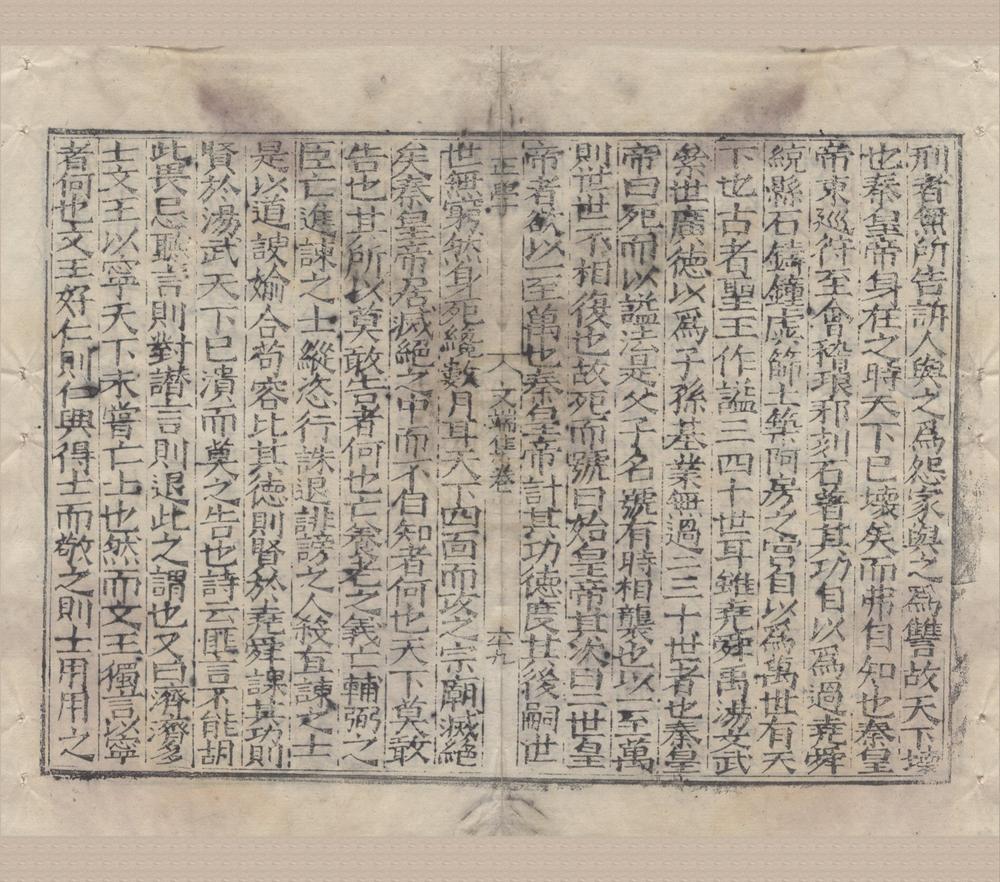 刑者無所告訴人與之爲怨家與之爲讐故天下壞
也秦皇帝身在之時天下已壞矣而弗自知也秦皇
帝東巡狩至會稽琅邪刻石著其功自以爲過堯舜
統縣石鑄鐘虡篩土築阿房之宮自以爲萬世有天
下也古者聖王作謚三四十世耳雖堯舜禹湯文武
絫世廣德以爲子孫基業無過二三十世者也秦皇
帝曰死而以謚法是父子名號有時相襲也以一至萬
則世世不相復也故死而號曰始皇帝其次曰二世皇
帝者欲以一至萬也秦皇帝計其功德度其後嗣世
正學 八 文端集卷
世無窮然身死纔數月耳天下四面而攻之宗廟滅絕
矣秦皇帝居滅絕之中而不自知者何也天下莫敢
告也其所以莫敢告者何也亡養老之義亡輔弼之
臣亡進諫之士縱恣行誅退誹謗之人殺直諫之士
是以道諛媮合苟容比其德則賢於堯舜課其功則
賢於湯武天下已潰而莫之告也詩云匪言不能胡
此畏忌聽言則對譖言則退此之謂也又曰濟濟多
士文王以寧天下未嘗亡士也然而文王獨言以寧
者何也文王好仁則仁興得士而敬之則士用用之